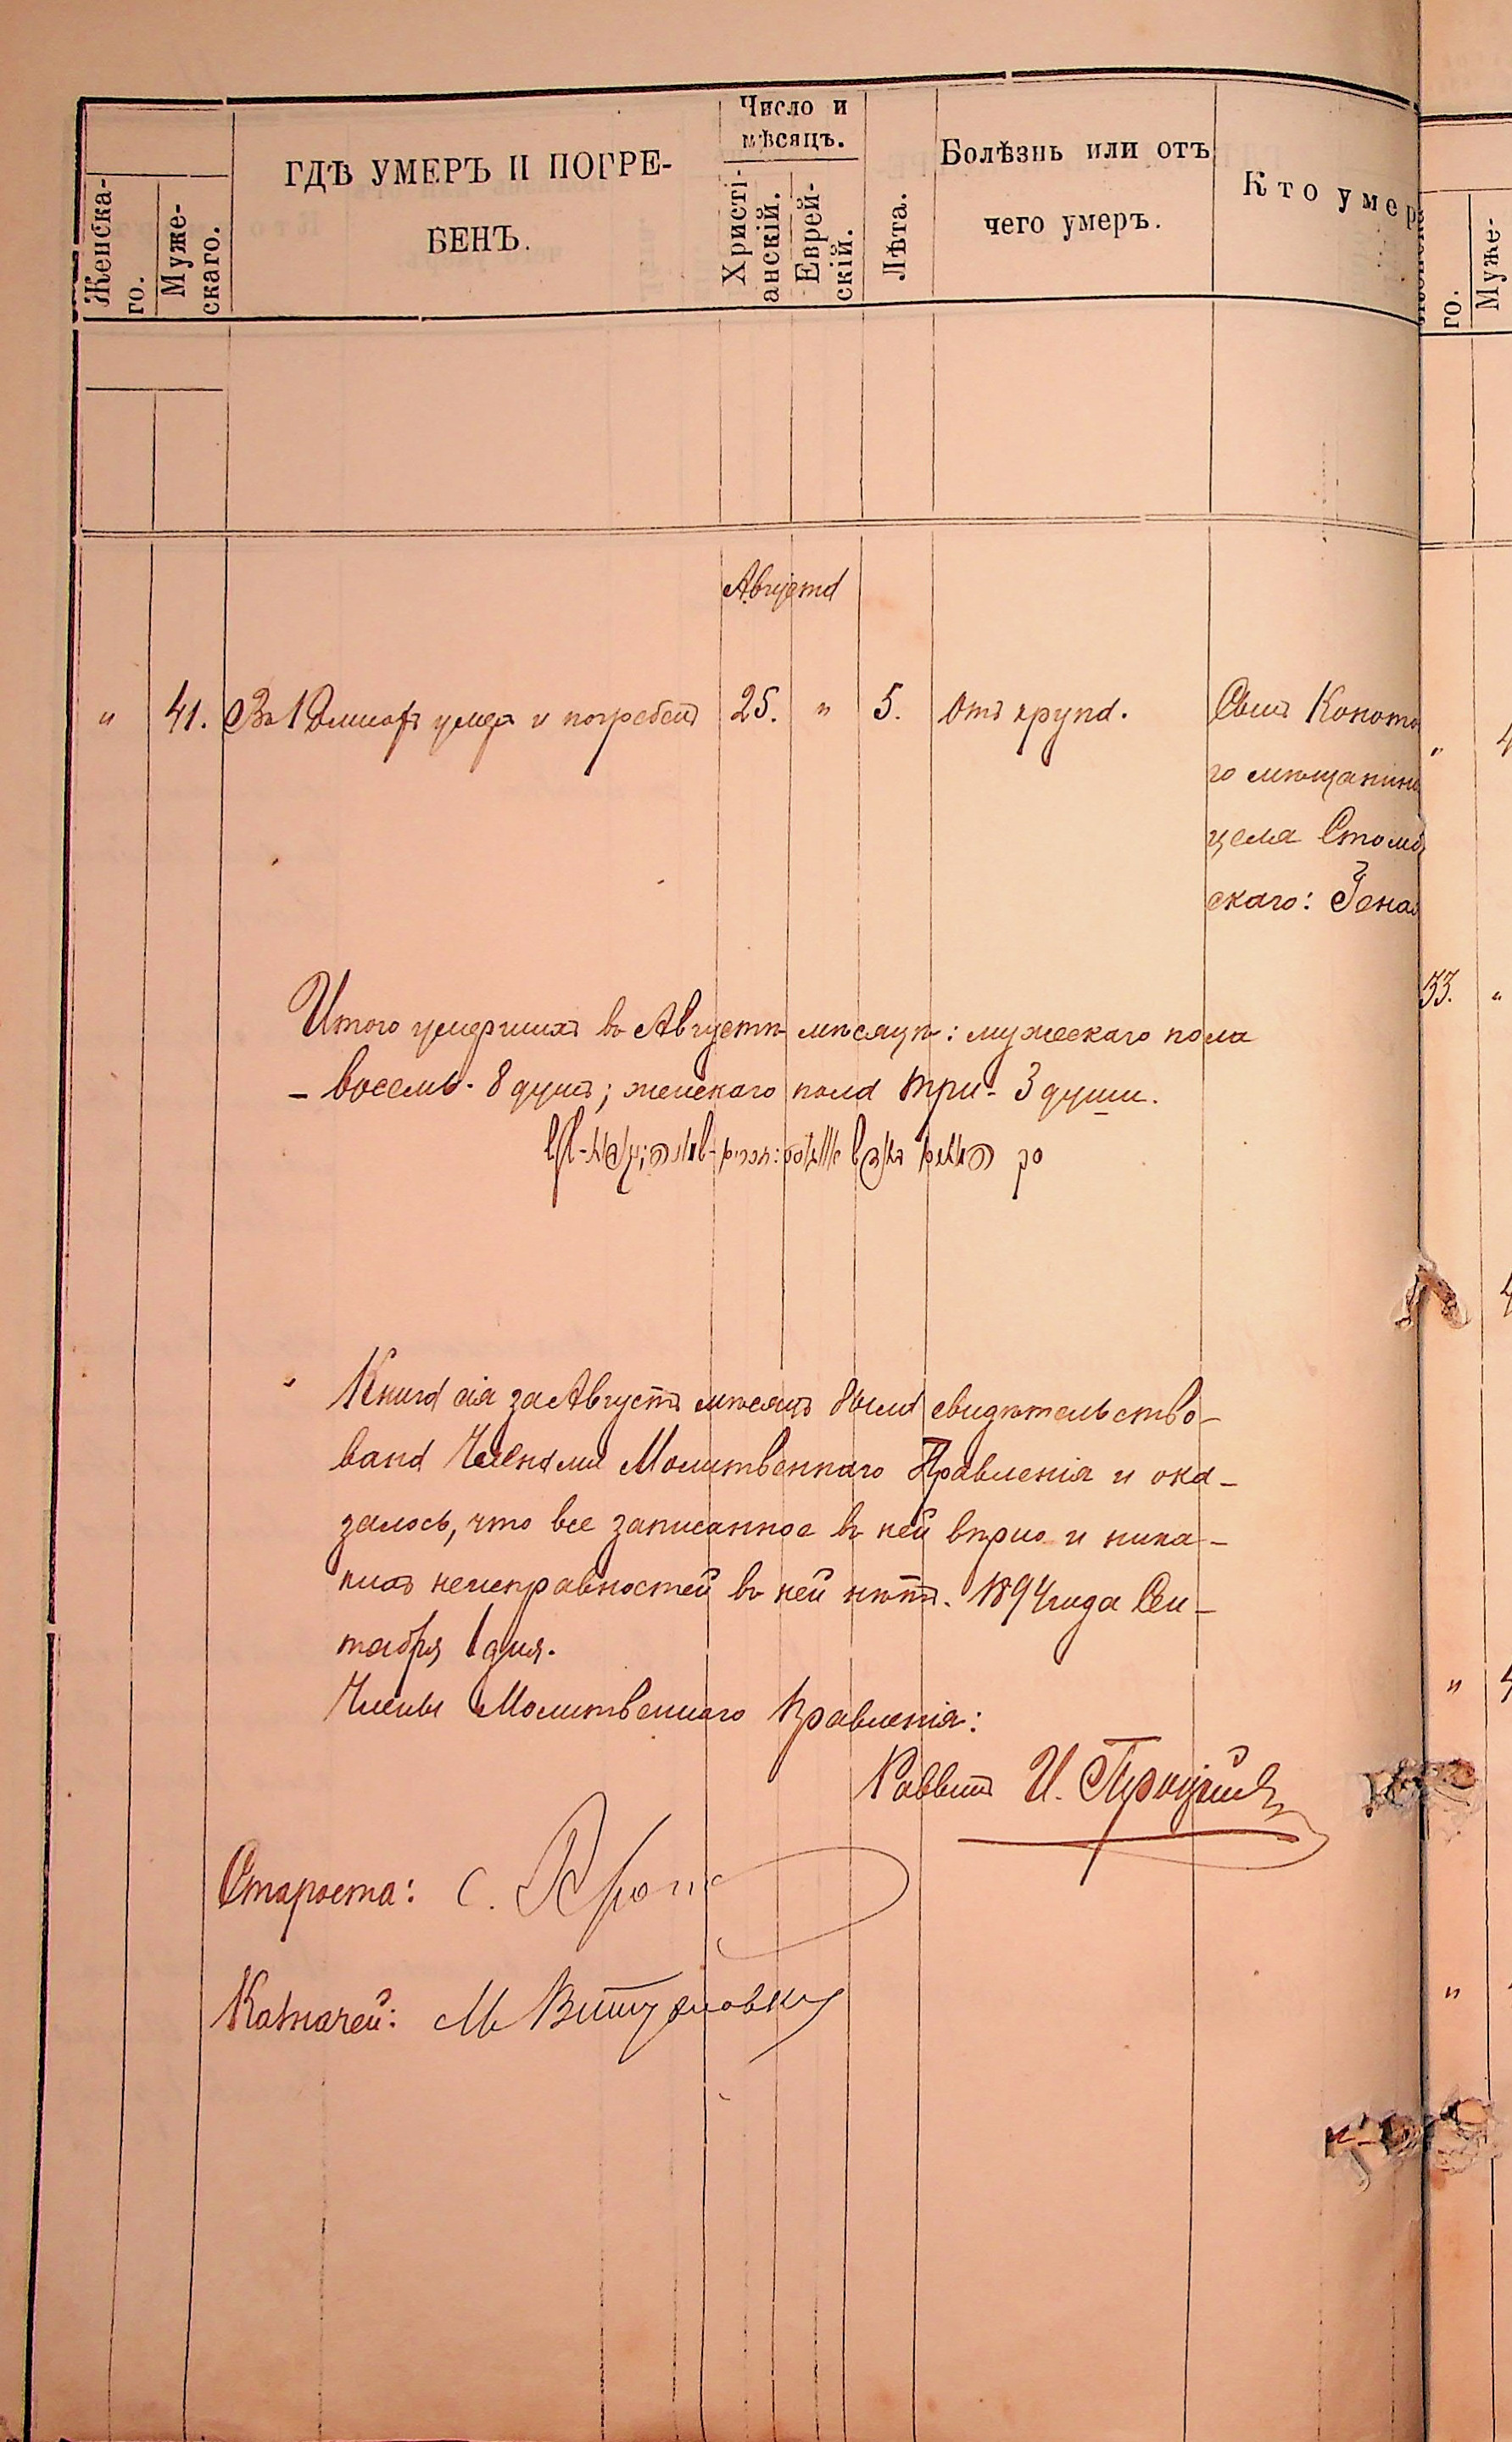 Женска-
го.
Муже-
скаго.
ГДѢ УМЕРЪ И ПОГРЕ-
БЕНЪ.
Число и
мѣсяцъ.
Христі-
анскій.
Еврей-
скій.
Лѣта.
Болѣзнь или отъ
чего умеръ.
Кто умер
го.
Муже-
Августа
" 41. умеръ и погребенъ 25. " 5. Отъ крупа. Сынъ Коното
го мѣщанина
скаго:
" 4
33. "
Итого умершихъ въ Августѣ мѣсяцѣ: мужескаго пола
- восемь - 8 душъ; женскаго пола три - 3 души.
Книга сія за Августъ мѣсяцъ была свидѣтельство-
вана Членами Молитвеннаго Правленія и ока-
залось, что все записанное въ ней вѣрно и ника-
кихъ неисправностей въ ней нѣтъ. 1894 года Сен-
тября 1 дня.
Члены Молитвеннаго Правленія:
Раввинъ И.
Староста: С.
Казначей: М